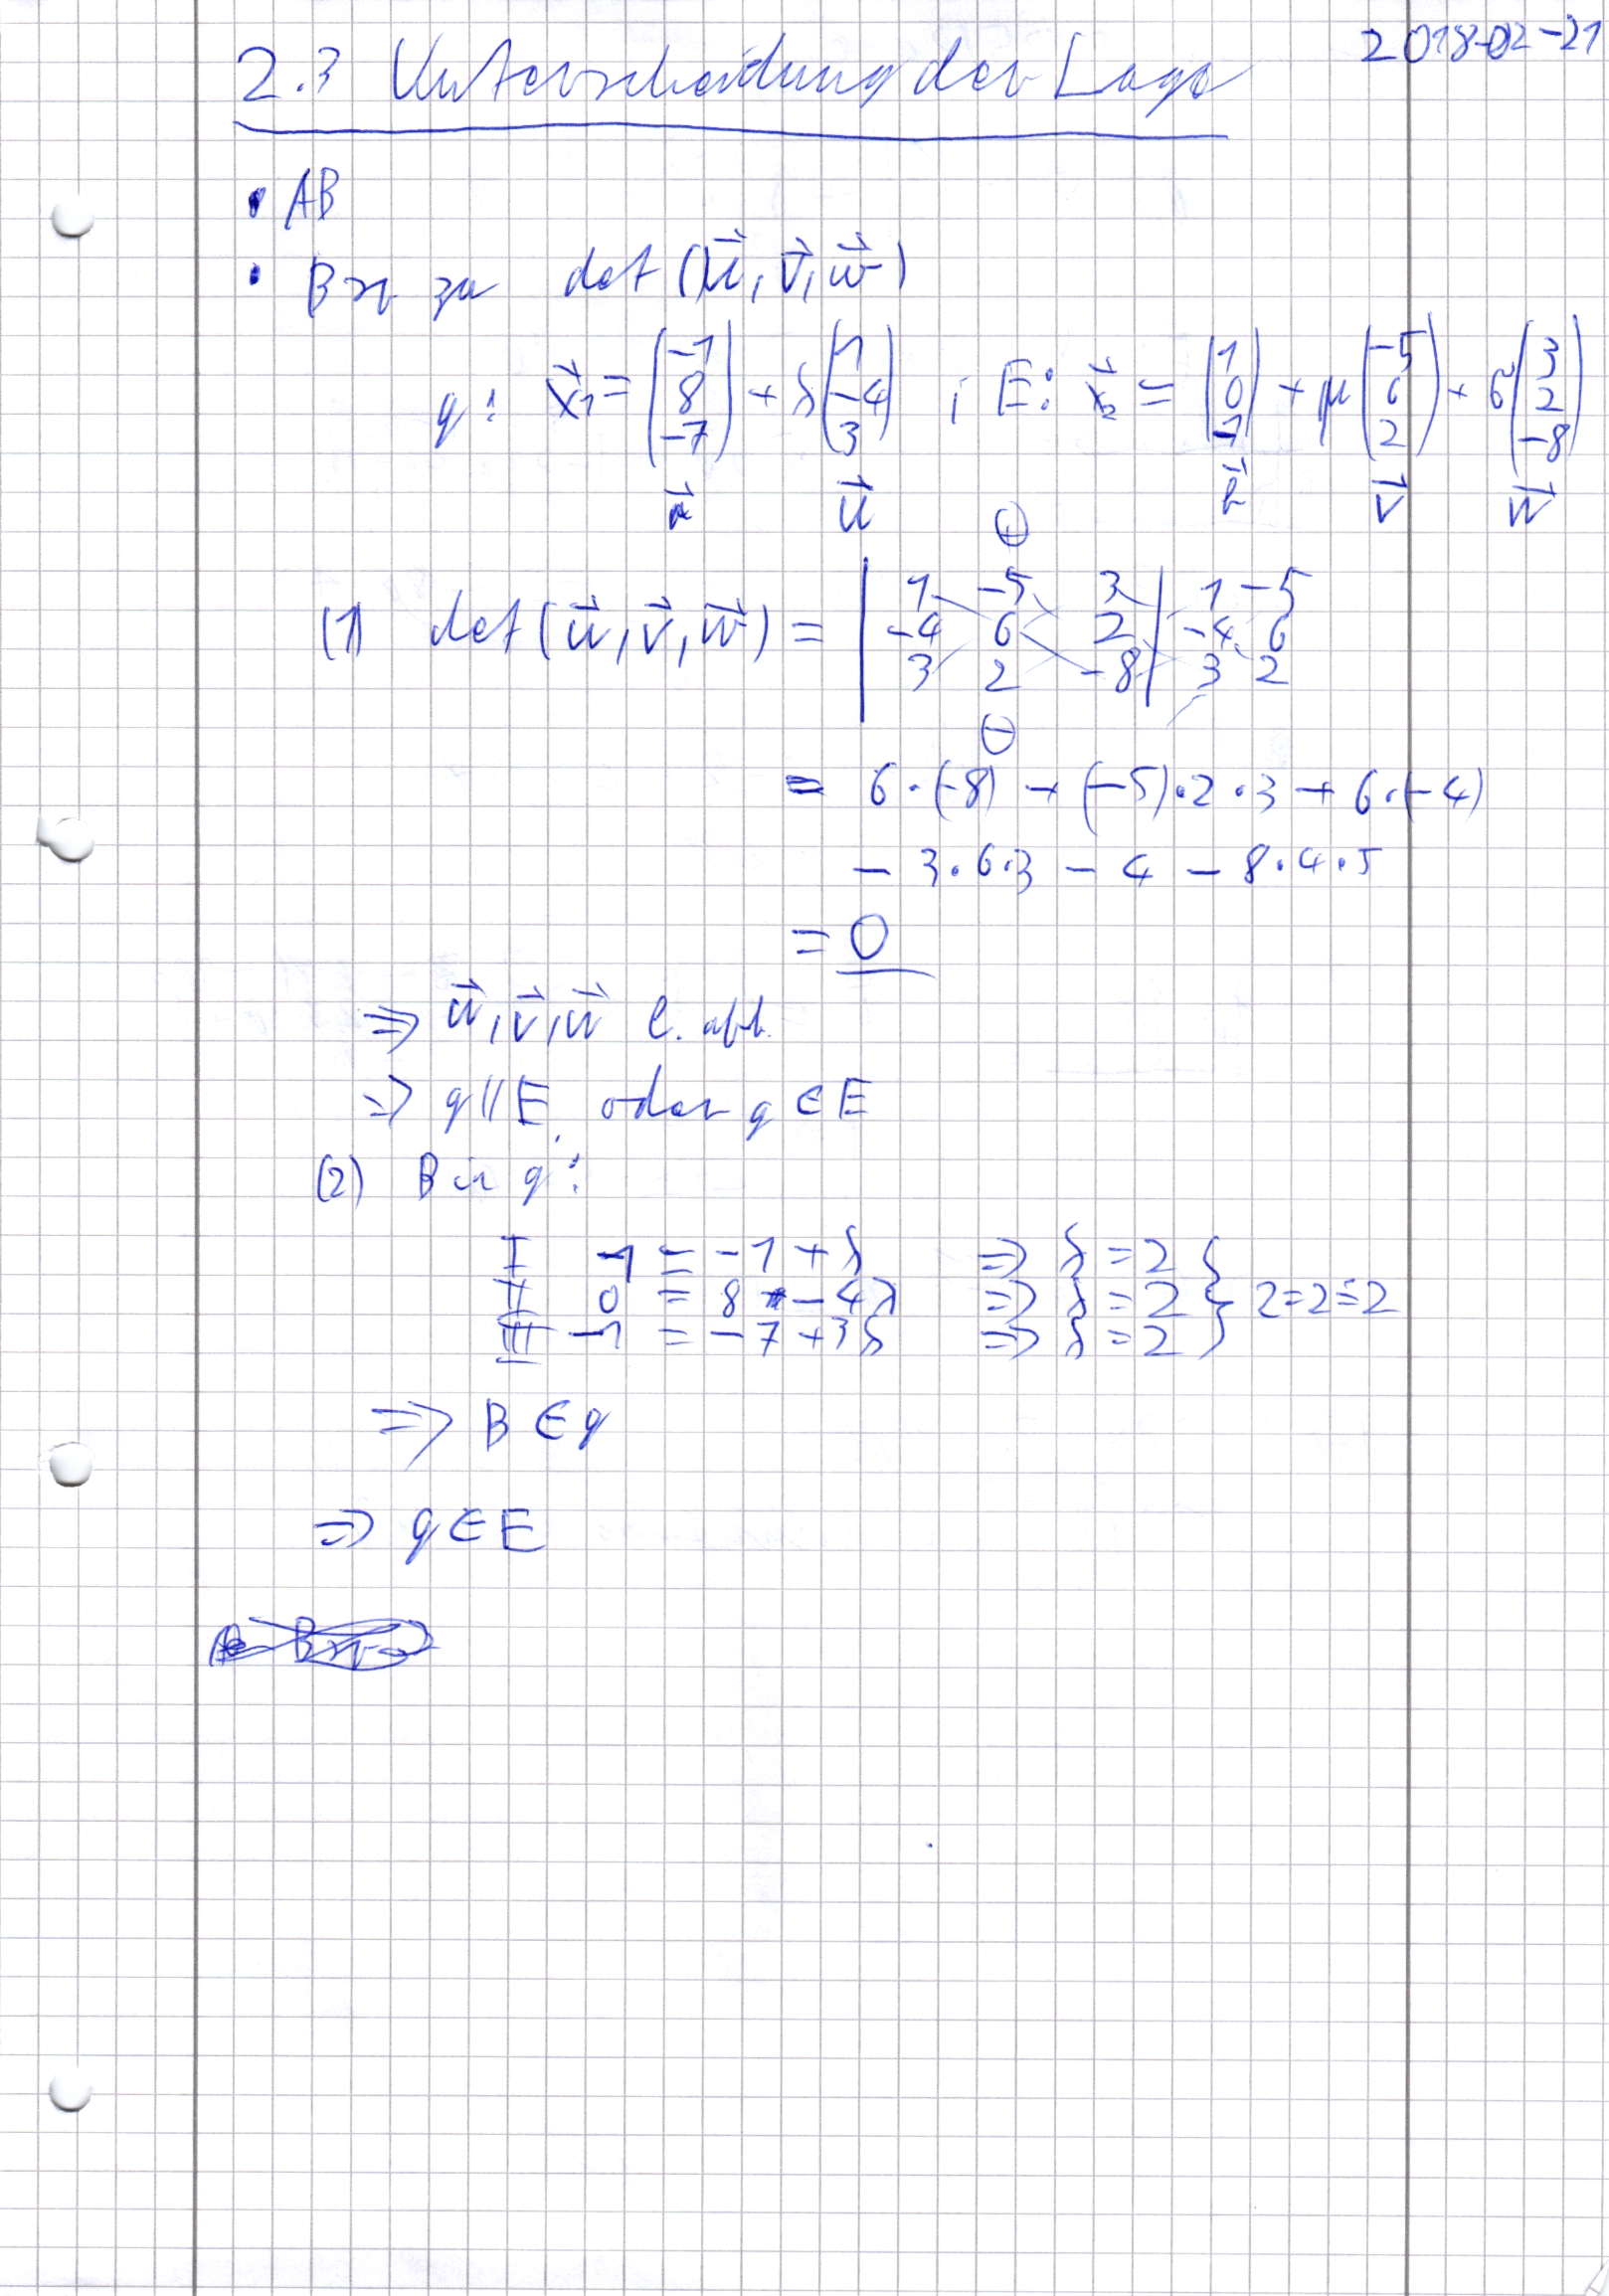 2018-02-21
2.3 Unterscheidung der Lage
• AB
• Bsp zu det(u⃗, v⃗, w⃗)
g: x⃗₁ = (-1 8 -7) + λ(1 -4 3) ; E: x⃗₂ = (1 0 -1) + μ(-5 6 2) + σ(3 2 -8)
a⃗ u⃗ b⃗ v⃗ w⃗
⊕
(1) det(u⃗, v⃗, w⃗) = | 1 -5 3 | 1 -5
-4 6 2 | -4 6
3 2 -8 | 3 2
⊖
= 6·(-8) + (-5)·2·3 + 6·(-4)
- 3·6·3 - 4 - 8·4·5
= 0
⇒ u⃗, v⃗, w⃗ l. abh.
⇒ g∥E oder g∈E
(2) B in g:
I 1 = -1 + λ ⇒ λ = 2
II 0 = 8 - 4λ ⇒ λ = 2 } 2=2=2
III -1 = -7 + 3λ ⇒ λ = 2
⇒ B ∈ g
⇒ g ∈ E